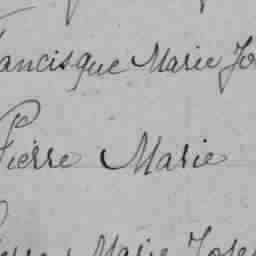 ancisque Marie Jo
Pierre Marie
Marie Jose